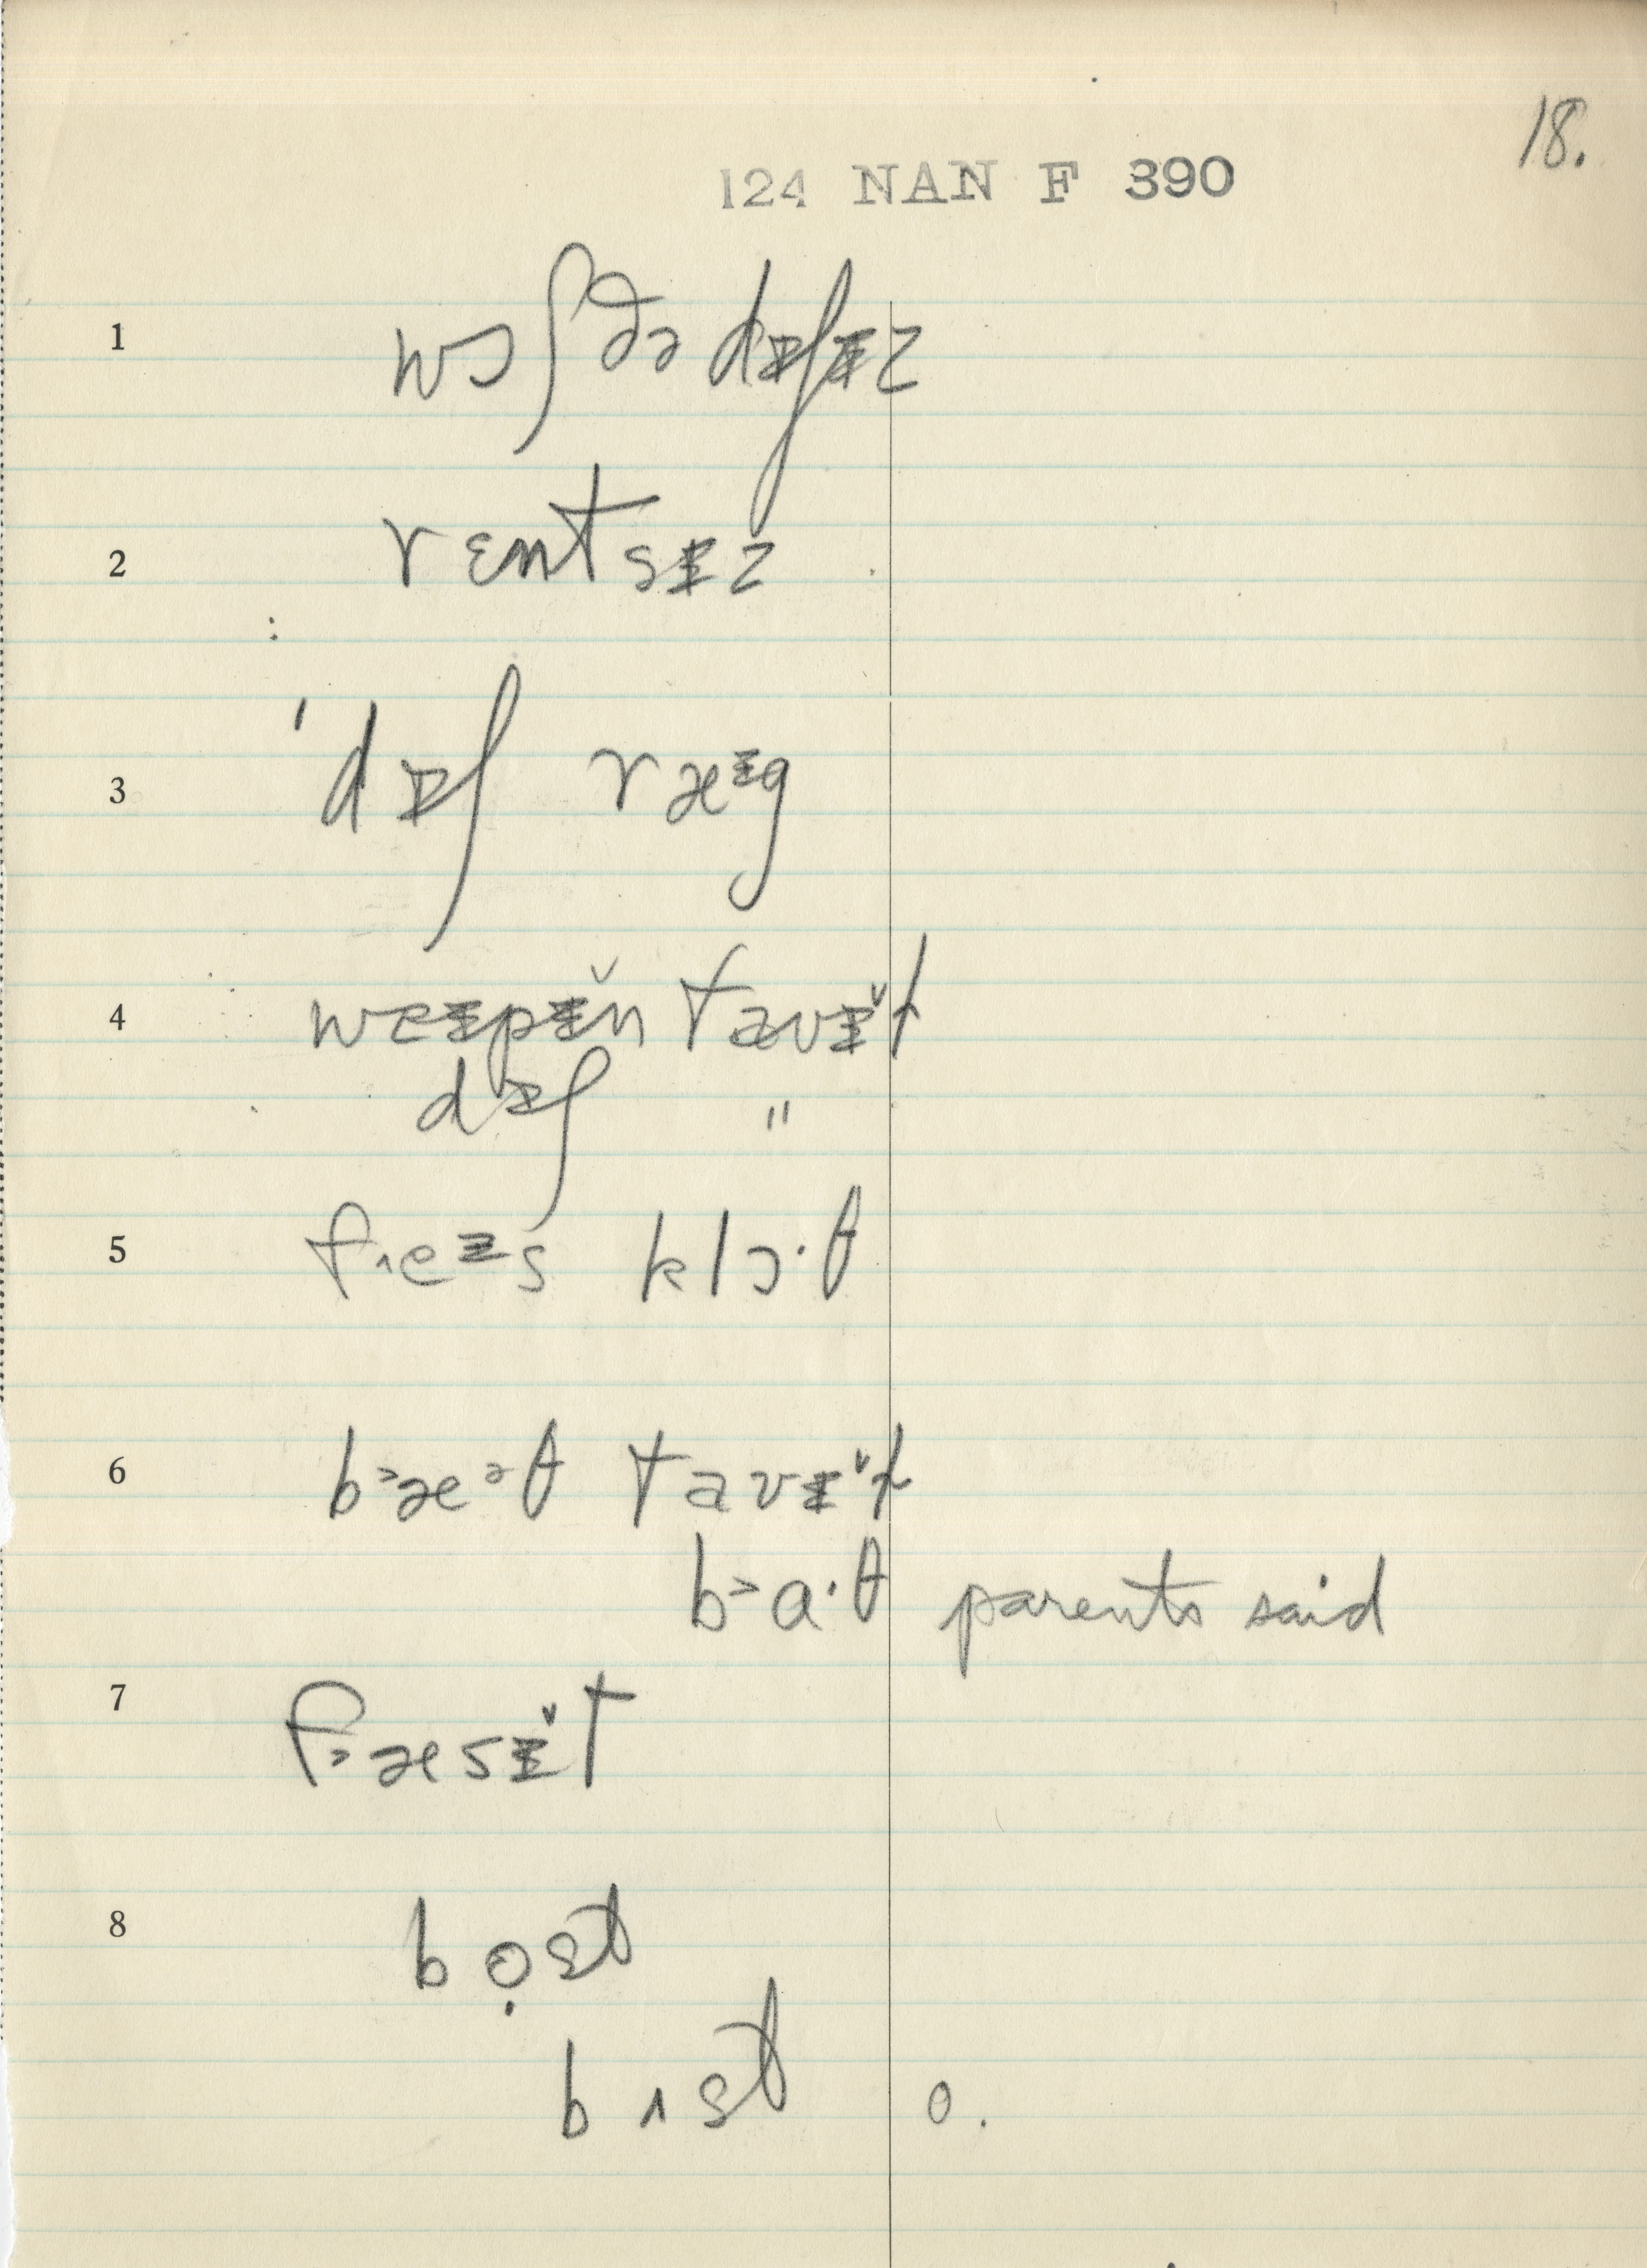 18.
124 NAN F 390
1 wɔʃ ðə dɪʃɪz
2 rɛntsɪz
3 ˈdɪʃ ræᶦg
4 weɪpɪ̆n tavɪ̆t
dɪʃ "
5 fʌeᶦs klɔ·θ
6 bᵊæᵊθ tavɪ̆t
bᵊa·θ parents said
7 fᵊæsɪ̆t
8 bọst
bʌst o.